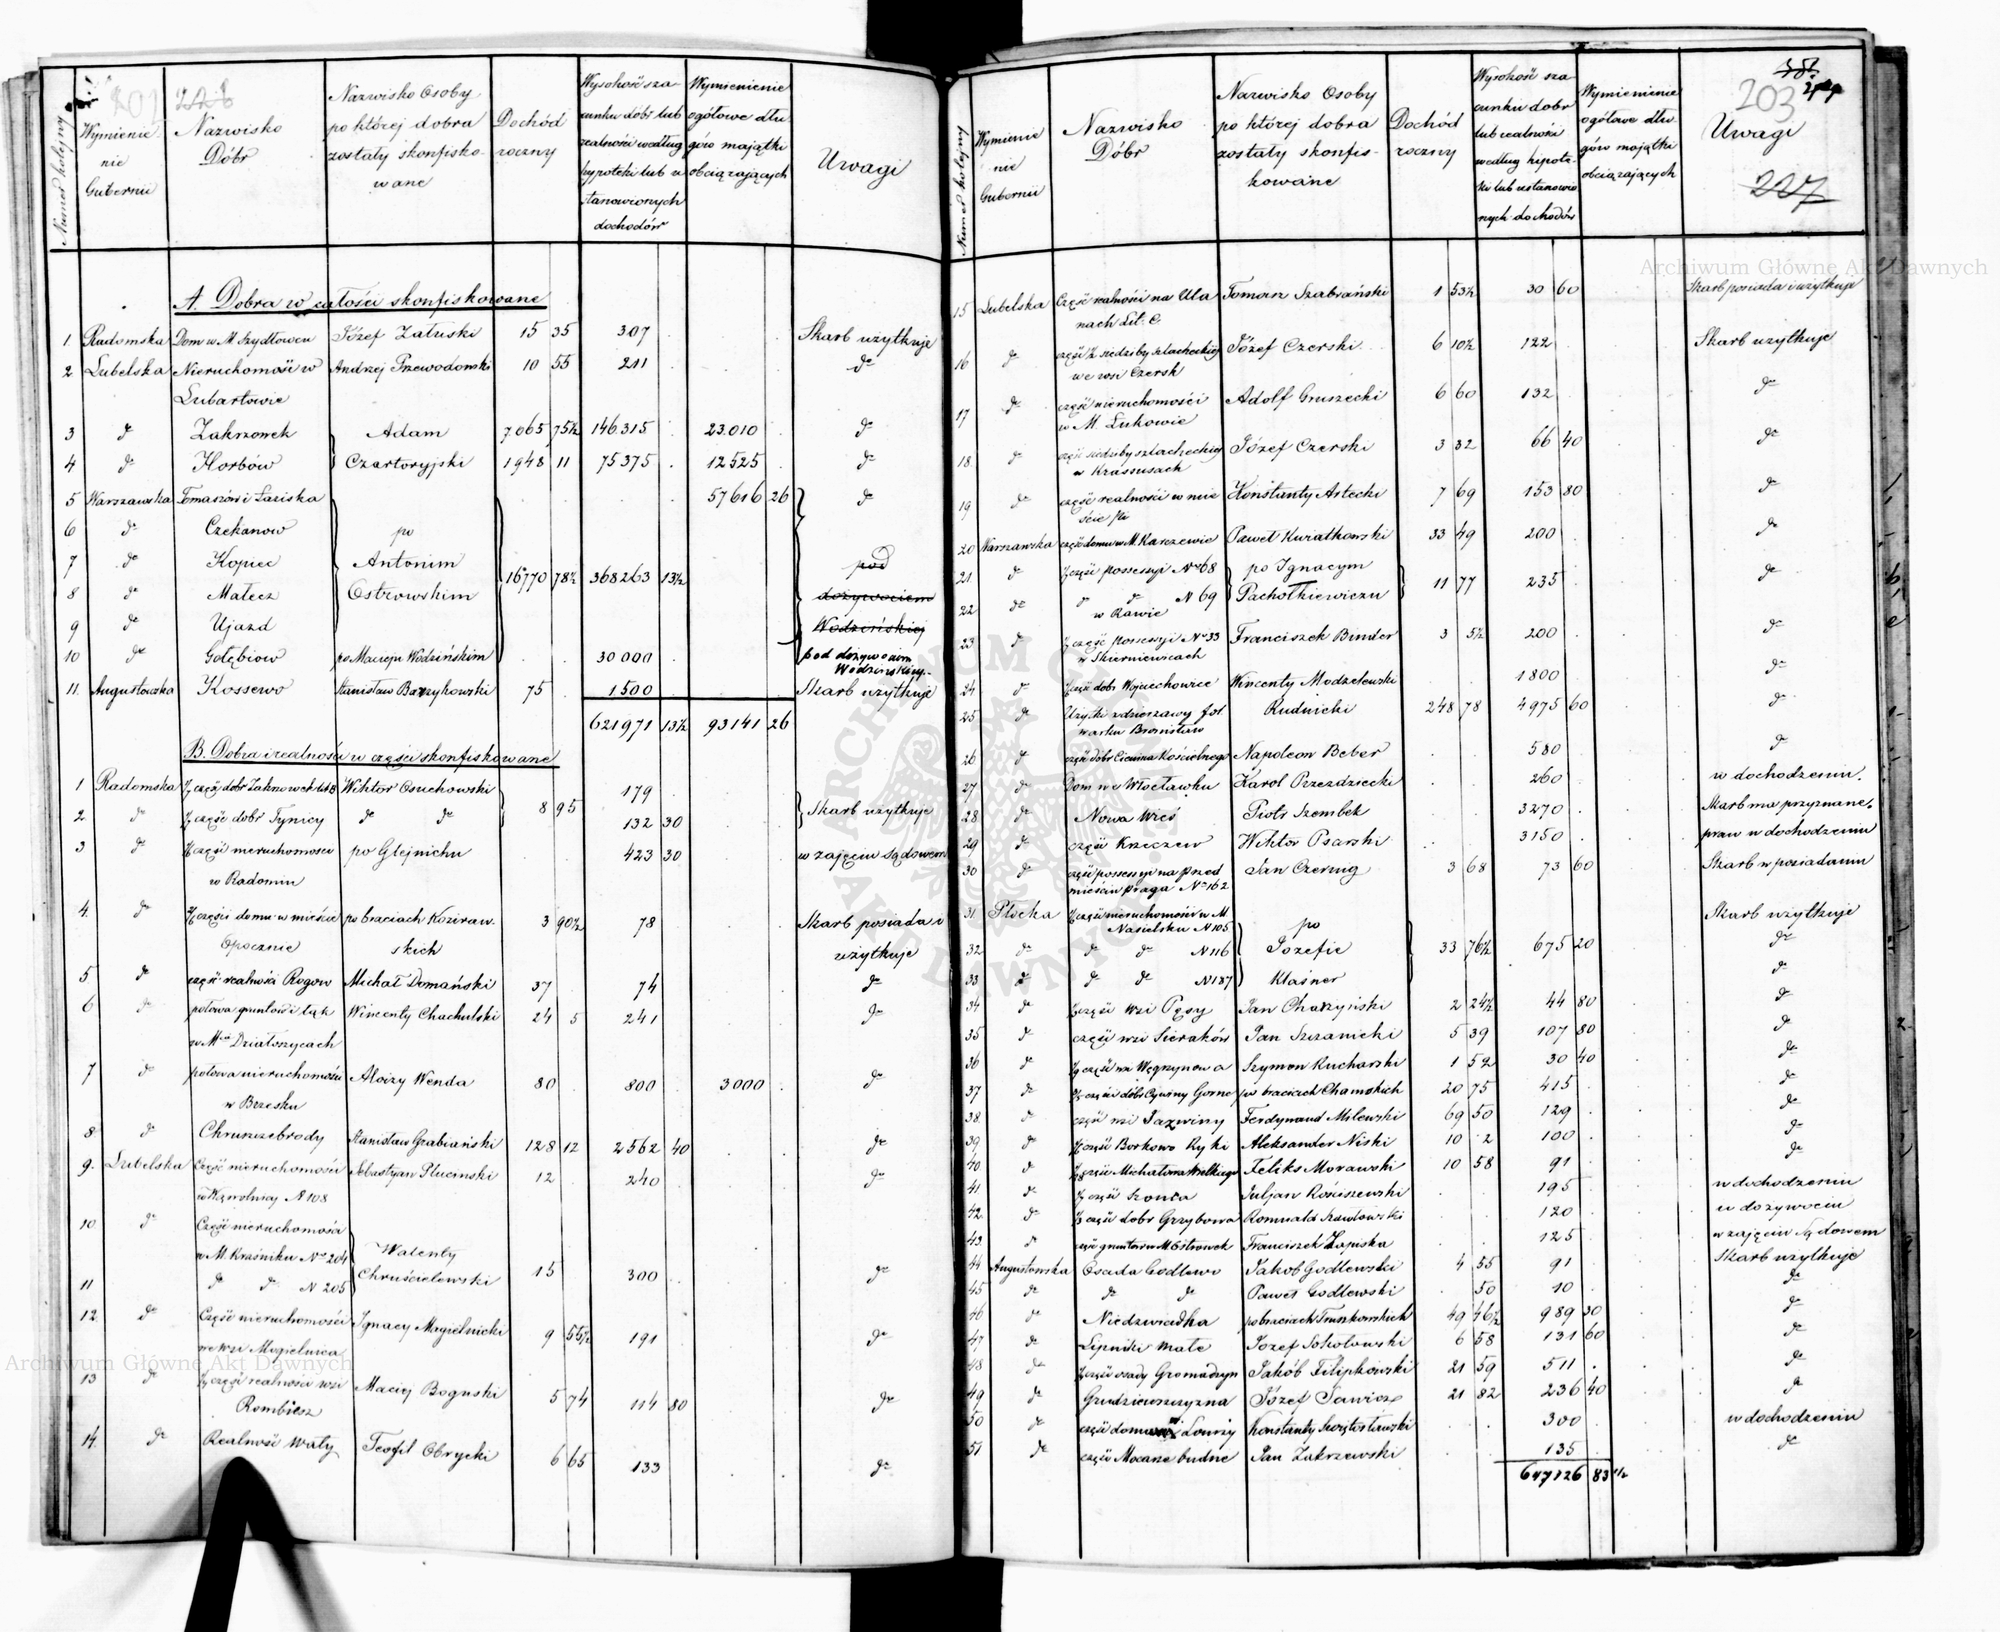 Numer kolejny
Wymienie
nie
Gubernii
Nazwisko
Dóbr
Nazwisko Osoby
po której dobra
zostały skonfisko-
wane
Dochód
roczny
Wysokość sza-
cunku dóbr lub
realności według
hypoteki lub u
stanowionych
dochodów
Wymienienie
ogółowe dłu-
gów majątki
obciążających
Uwagi
A. Dobra w całości skonfiskowane
1 Radomska Dom w M. Szydłowcu Józef Załuski 15 35 307 Skarb użytkuje
2 Lubelska Nieruchomość w Andrzej Przewodowski 10 55 211 do
Lubartowie
3 do Zakrzowek Adam 7.065 75½ 146.315 23.010 do
4 do Horbów Czartoryjski 1948 11 75375 12525 do
5 Warszawska Tomaszów i Łaziska 57616 26 do
6 do Czekanow po
7 do Kopiec Antonim pod
16770 78½ 368263 13½
8 do Małecz Ostrowskim dożywociem
9 do Ujazd Wodzińskiej
10 do Gołębiow po Macieju Wodzińskim 30 000 pod dożywociem
Wodzińskiej
11. Augustowska Kossewo Stanisław Barzykowski 75 1500 Skarb użytkuje
621971 13½ 93141 26
B. Dobra i realności w części skonfiskowane
1 Radomska część dobr Zakrzowek Wiktor Osuchowski 179
8 95 Skarb użytkuje
2 do część dobr Tynicy do do 132 30
3 do część nieruchomości po Glejnichu 423 30 w zajęciu Sądowem
w Radomiu
4 do części domu w mieście po braciach Koziraw- 3 90½ 78 Skarb posiada i
Opocznie skich użytkuje
5 do część realności Rogow Michał Domański 37 74 do
6 do połowa gruntów i łąk Wincenty Chachulski 24 5 241 do
w Mie Działoszycach
7 do połowa nieruchomości Aloizy Wenda 80 800 3000 do
w Brzesku
8 do Chruszczebrody Stanisław Grabiański 128 12 2562 40 do
9. Lubelska Część nieruchomości Sebastyan Pluciński 12 240 do
N 108
10 do Część nieruchomości
w M. Kraśniku No 204 Walenty
Chruścielewski 15 300 do
11 do do N 205
12 do Część nieruchomości Ignacy Magielnicki 9 55½ 191 do
we wsi Magielnica
13 do część realności wsi Maciej Boguski 5 74 114 80 do
Rombiesz
14. do Realność Wały Teofil Obrycki 6 65 133 do
203
227
Numer kolejny
Wymienie
nie
Gubernii
Nazwisko
Dóbr
Nazwisko Osoby
po której dobra
zostały skonfis-
kowane
Dochód
roczny
Wysokość sza-
cunku dobr
lub realności
według hipote-
ki lub ustanowio
nych dochodów
Wymienienie
ogółowe dłu-
gów majątki
obciążających
Uwagi
15 Lubelska Część realności na Ula Tomasz Szabrański 1 53½ 30 60 Skarb posiada i użytkuje
nach Lit. C.
16 do część siedziby szlacheckiej Józef Czerski 6 10½ 122 Skarb użytkuje
we wsi Czersk
17 do część nieruchomości Adolf Gruszecki 6 60 132 do
w M. Łukowie
18 do część siedziby szlacheckiej Józef Czerski 3 32 66 40 do
w Krassusach
19 do część realności w mie Konstanty Artecki 7 69 153 80 do
20 Warszawska część domu w M. Karczewie Paweł Kwiatkowski 33 49 200 do
21 do część possessyi No 68 po Ignacym
11 77 235 do
22 do do do N 69 Pachołkiewiczu
w Rawie
23 do część possessyi No 33 Franciszek Binder 3 5½ 200 do
w Skierniewicach
24 do część dobr Wojciechowice Wincenty Modzelewski 1800 do
25 do Użytki z dzierżawy fol Rudnicki 248 78 4975 60 do
warku Bronisław
26 do część dóbr Ciemna Kościelnego Napoleon Beber 580 do
27 do Dom we Włocławku Karol Przezdziecki 260 w dochodzeniu.
28 do Nowa Wieś Piotr Szembek 3270 Skarb ma przyznane.
29 do część Krzeczew Wiktor Psarski 3150 praw w dochodzeniu
30 do część possessyi na przed Jan Czernig 3 68 73 60 Skarb w posiadaniu
mieściu Praga No 162
31 Płocka część nieruchomości w M. Skarb użytkuje
Nasielsku N 105 po
32 do do do N 116 Jozefie 33 76½ 675 20 do
33 do do do N 187 Klaśner do
34 do część wsi Pęsy Jan Charzyński 2 24½ 44 80 do
35 do część wsi Sieraków Jan Szczanicki 5 39 107 80 do
36 do część wsi Węgrzynowa Szymon Kucharski 1 52 30 40 do
37 do części dóbr Cywiny Gorne po braciach Chamskich 20 75 415 do
38 do część wsi Jazwiny Ferdynand Milewski 69 50 129 do
39 do część Borkowo Ryki Aleksander Niski 10 2 100 do
40 do część Michałowa Wielkiego Feliks Morawski 10 58 91 do
41 do część Szonta Juljan Rościszewski 195 w dochodzeniu
42 do część dobr Grzybowa Romuald Szawłowski 120 w dożywociu
43 do część gruntów w M. Ostrowek Franciszek Łapiska 125 w zajęciu Sądowem
44 Augustowska Osada Godlewo Jakob Godlewski 4 55 91 Skarb użytkuje
45 do do do Paweł Godlewski 50 10 do
46 do Niedzwiadka po braciach Truszkowskich 49 46½ 989 30 do
47 do Lipniki małe Jozef Sokołowski 6 58 131 60 do
48 do część osady Gromadzyn Jakób Filipkowski 21 59 511 do
49 do Grudziewszczyzna Józef Sawicz 21 82 236 40 do
50 do część domu Łomży Konstanty Świętosławski 300 w dochodzeniu
51 do część Mocarze budne Jan Zakrzewski 135 do
647126 83½
Archiwum Główne Akt Dawnych
Archiwum Główne Akt Dawnych